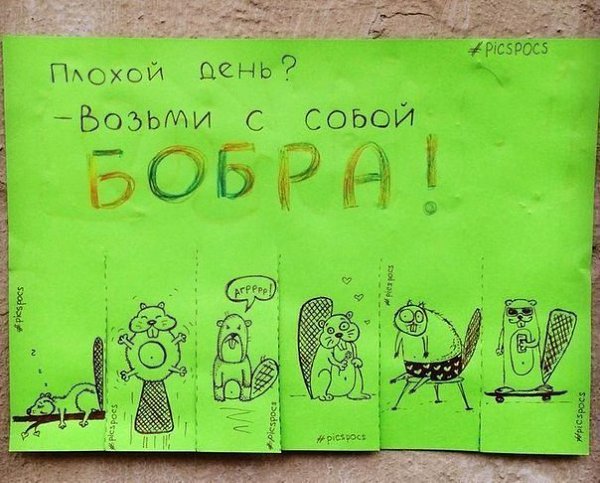 #PICSPOCS
Плохой день?
-Возьми с собой
БОБРА!
Агрррр!
#picspocs
#picspocs
#picspocs
#picspocs
#picspocs
#picspocs